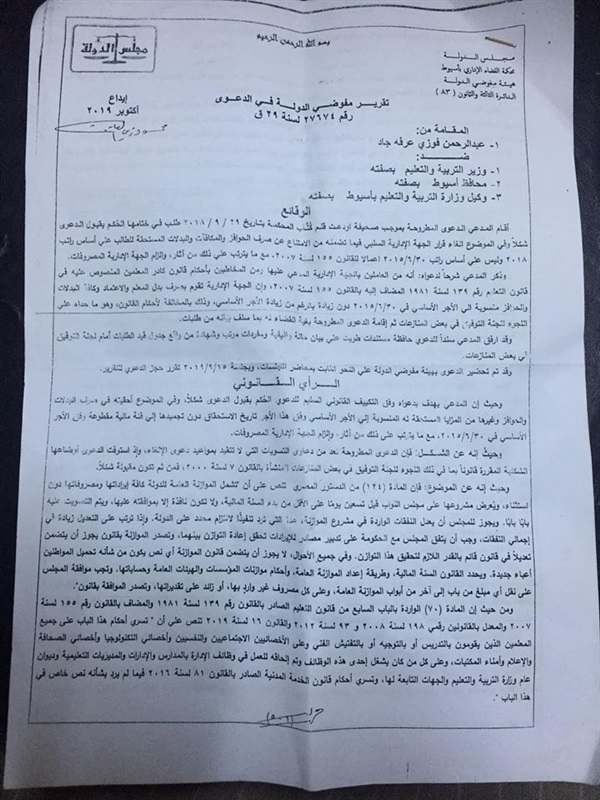 بسم الله الرحمن الرحيم
مجلس الدولة
مجلس الدولة
محكمة القضاء الإداري بأسيوط
هيئة مفوضي الدولة
الدائرة الثالثة والثمانون (٨٣)
إيداع
أكتوبر ٢٠١٩
تقرير مفوضي الدولة في الدعوى
رقم ٢٧٦٧٤ لسنة ٢٩ ق
المقامة من:
١- عبدالرحمن فوزي عرفه جاد
ضد:
١- وزير التربية والتعليم بصفته
٢- محافظ أسيوط بصفته
٣- وكيل وزارة التربية والتعليم بأسيوط بصفته
الوقائع
أقام المدعي الدعوى المطروحة بموجب صحيفة أودعت قلم كتاب المحكمة بتاريخ ٢٩ / ٩ / ٢٠١٨ طلب في ختامها الحكم بقبول الدعوى
شكلاً وفي الموضوع إلغاء قرار الجهة الإدارية السلبي فيما تضمنه من الامتناع عن صرف الحوافز والمكافآت والبدلات المستحقة للطالب علي أساس راتب
٢٠١٨ وليس علي أساس راتب ٢٠١٥/٦/٣٠ إعمالا للقانون ١٥٥ لسنة ٢٠٠٧، مع ما يترتب علي ذلك من آثار، وإلزام الجهة الإدارية المصروفات.
وذكر المدعي شرحاً لدعواه: أنه من العاملين بالجهة الإدارية المدعي عليها ومن المخاطبين بأحكام قانون كادر المعلمين المنصوص عليه في
قانون التعليم رقم ١٣٩ لسنة ١٩٨١ المضاف إليه بالقانون ١٥٥ لسنة ٢٠٠٧، وإن الجهة الإدارية تقوم بصرف بدل المعلم والاعتماد وكافة البدلات
والحوافز منسوبة الي الأجر الأساسي في ٢٠١٥/٦/٣٠ دون زيادة بالرغم من زيادة الأجر الأساسي، وذلك بالمخالفة لأحكام القانون، وهو ما حداه علي
اللجوء للجنة التوفيق في بعض المنازعات ثم إقامة الدعوى المطروحة بغية القضاء له بما سلف بيانه من طلبات.
وقد ارفق المدعي سنداً للدعوي حافظة مستندات طويت علي بيان حالة وظيفية ومفردات مرتب وشهادة من واقع جدول قيد الطلبات أمام لجنة التوفيق
في بعض المنازعات.
وقد تم تحضير الدعوى بهيئة مفوضي الدولة علي النحو الثابت بمحاضر الجلسات، وبجلسة ٢٠١٩/٩/١٥ تقرر حجز الدعوي للتقرير.
الرأي القانوني
وحيث إن المدعي يهدف بدعواه وفق التكييف القانوني السليم للدعوي الحكم بقبول الدعوى شكلاً، وفي الموضوع أحقيته في صرف البدلات
والحوافز وغيرها من المزايا المستحقة له المنسوبة إلي الأجر الأساسي وفق هذا الأجر تاريخ الاستحقاق دون تجميدها إلي فئة مالية مقطوعة وفق الأجر
الأساسي في ٢٠١٥/٦/٣٠، مع ما يترتب علي ذلك من آثار، وإلزام الجهة الإدارية المصروفات.
وحيث إنه عن الشكل: فإن الدعوى المطروحة تعد من دعاوي التسويات التي لا تتقيد بمواعيد دعوى الإلغاء، وإذ استوفت الدعوى أوضاعها
الشكلية المقررة قانوناً بما في ذلك اللجوء للجنة التوفيق في بعض المنازعات المنشأة بالقانون ٧ لسنة ٢٠٠٠، فمن ثم تكون مقبولة شكلاً.
وحيث إنه عن الموضوع: فإن المادة (١٢٤) من الدستور المصري تنص على أن تشمل الموازنة العامة للدولة كافة إيراداتها ومصروفاتها دون
استثناء، ويُعرض مشروعها على مجلس النواب قبل تسعين يومًا على الأقل من بدء السنة المالية، ولا تكون نافذة إلا بموافقته عليها، ويتم التصويت عليه
بابًا بابًا. ويجوز للمجلس أن يعدل النفقات الواردة في مشروع الموازنة، عدا التي ترد تنفيذًا لالتزام محدد على الدولة. وإذا ترتب على التعديل زيادة في
إجمالي النفقات، وجب أن يتفق المجلس مع الحكومة على تدبير مصادر للإيرادات تحقق إعادة التوازن بينهما، وتصدر الموازنة بقانون يجوز أن يتضمن
تعديلاً في قانون قائم بالقدر اللازم لتحقيق هذا التوازن. وفي جميع الأحوال، لا يجوز أن يتضمن قانون الموازنة أي نص يكون من شأنه تحميل المواطنين
أعباء جديدة. ويحدد القانون السنة المالية، وطريقة إعداد الموازنة العامة، وأحكام موازنات المؤسسات والهيئات العامة وحساباتها. وتجب موافقة المجلس
على نقل أي مبلغ من باب إلى آخر من أبواب الموازنة العامة، وعلى كل مصروف غير وارد بها، أو زائد على تقديراتها، وتصدر الموافقة بقانون".
ومن حيث إن المادة (٧٠) الواردة بالباب السابع من قانون التعليم الصادر بالقانون رقم ١٣٩ لسنة ١٩٨١ والمضاف بالقانون رقم ١٥٥ لسنة
٢٠٠٧ والمعدل بالقانونين رقمي ١٩٨ لسنة ٢٠٠٨ و ٩٣ لسنة ٢٠١٢ والقانون ١٦ لسنة ٢٠١٩ تنص علي أن " تسري أحكام هذا الباب على جميع
المعلمين الذين يقومون بالتدريس أو بالتوجيه أو بالتفتيش الفني وعلى الأخصائيين الاجتماعيين والنفسيين وأخصائي التكنولوجيا وأخصائي الصحافة
والإعلام وأمناء المكتبات، وعلى كل من كان يشغل إحدى هذه الوظائف وتم إلحاقه للعمل في وظائف الإدارة بالمدارس والإدارات والمديريات التعليمية وديوان
عام وزارة التربية والتعليم والجهات التابعة لها، وتسري أحكام قانون الخدمة المدنية الصادر بالقانون ٨١ لسنة ٢٠١٦ فيما لم يرد بشأنه نص خاص في
هذا الباب ".